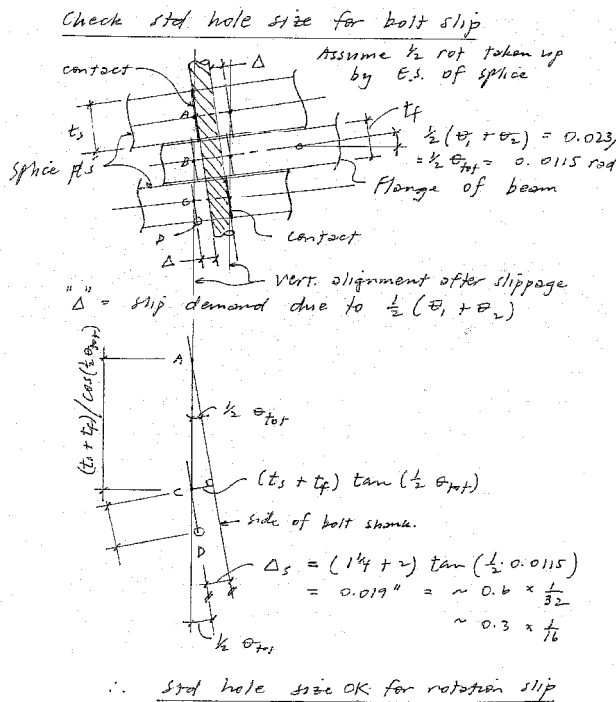 Check std. hole size for bolt slip
Assume ½ rot taken up
by E.S. of splice
contact
Δ
A
t_f
t_s
½(θ₁ + θ₂) = 0.023/
= ½ θ_tot = 0.0115 rad
B
splice pl's
Flange of beam
C
D
contact
Δ
vert. alignment after slippage
"Δ" = slip demand due to ½(θ₁ + θ₂)
A
(t_s + t_f)/cos(½θ_tot)
½ θ_tot
C
(t_s + t_f) tan(½ θ_tot)
side of bolt shank.
D
Δ_s = (1¼ + 2) tan(½·0.0115)
= 0.019" = ~ 0.6 x 1/32
~ 0.3 x 1/16
½ θ_tot
∴ std hole size OK for rotation slip